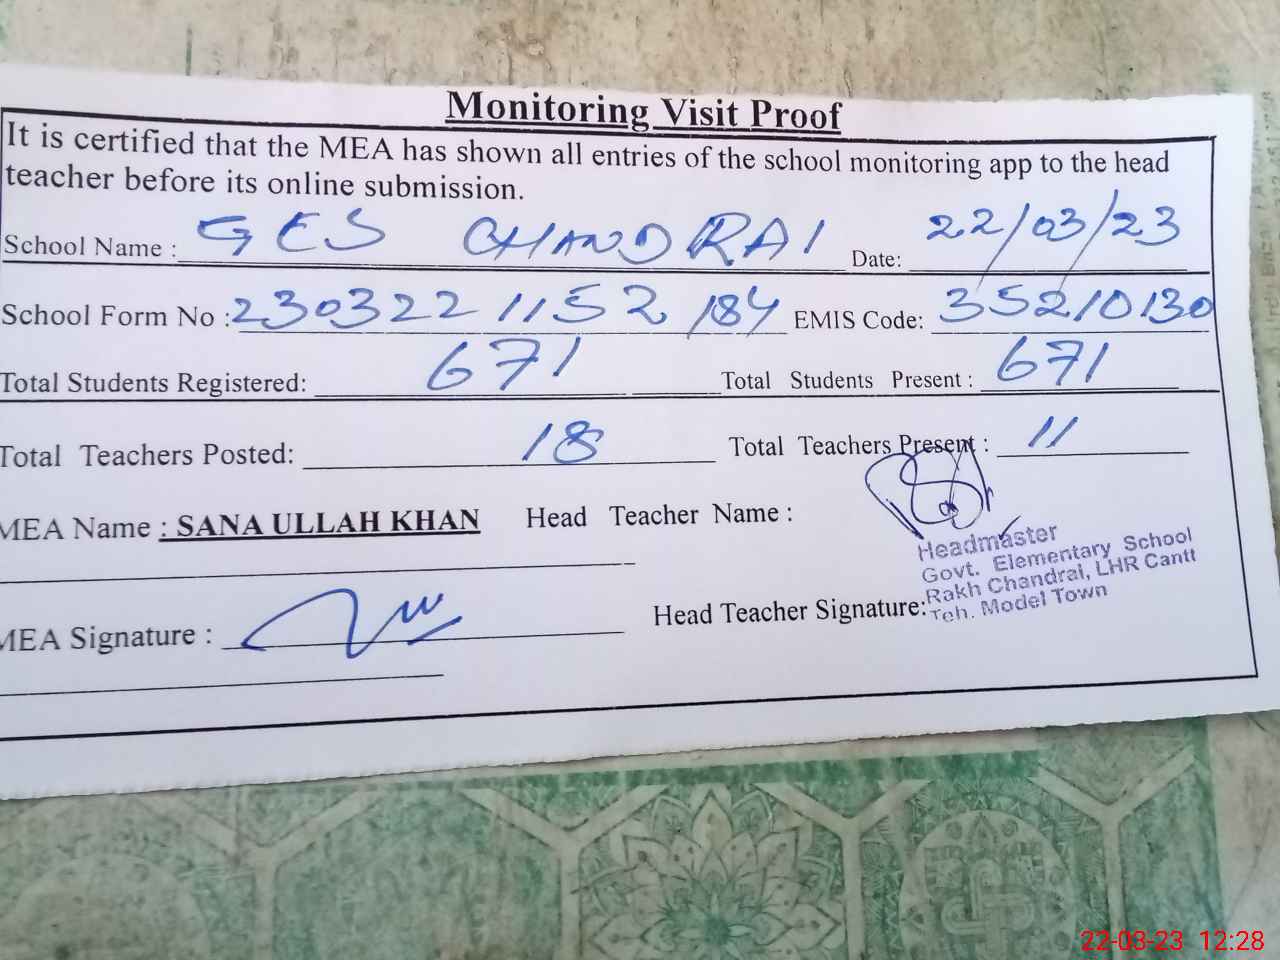 Monitoring Visit Proof
It is certified that the MEA has shown all entries of the school monitoring app to the head
teacher before its online submission.
School Name : GES CHANDRAI Date: 22/03/23
School Form No : 230322 1152 184 EMIS Code: 35210130
Total Students Registered: 671 Total Students Present : 671
Total Teachers Posted: 18 Total Teachers Present : 11
MEA Name : SANA ULLAH KHAN Head Teacher Name :
Headmaster
Govt. Elementary School
Rakh Chandrai, LHR Cantt
Teh. Model Town
MEA Signature : Head Teacher Signature:
22-03-23 12:28